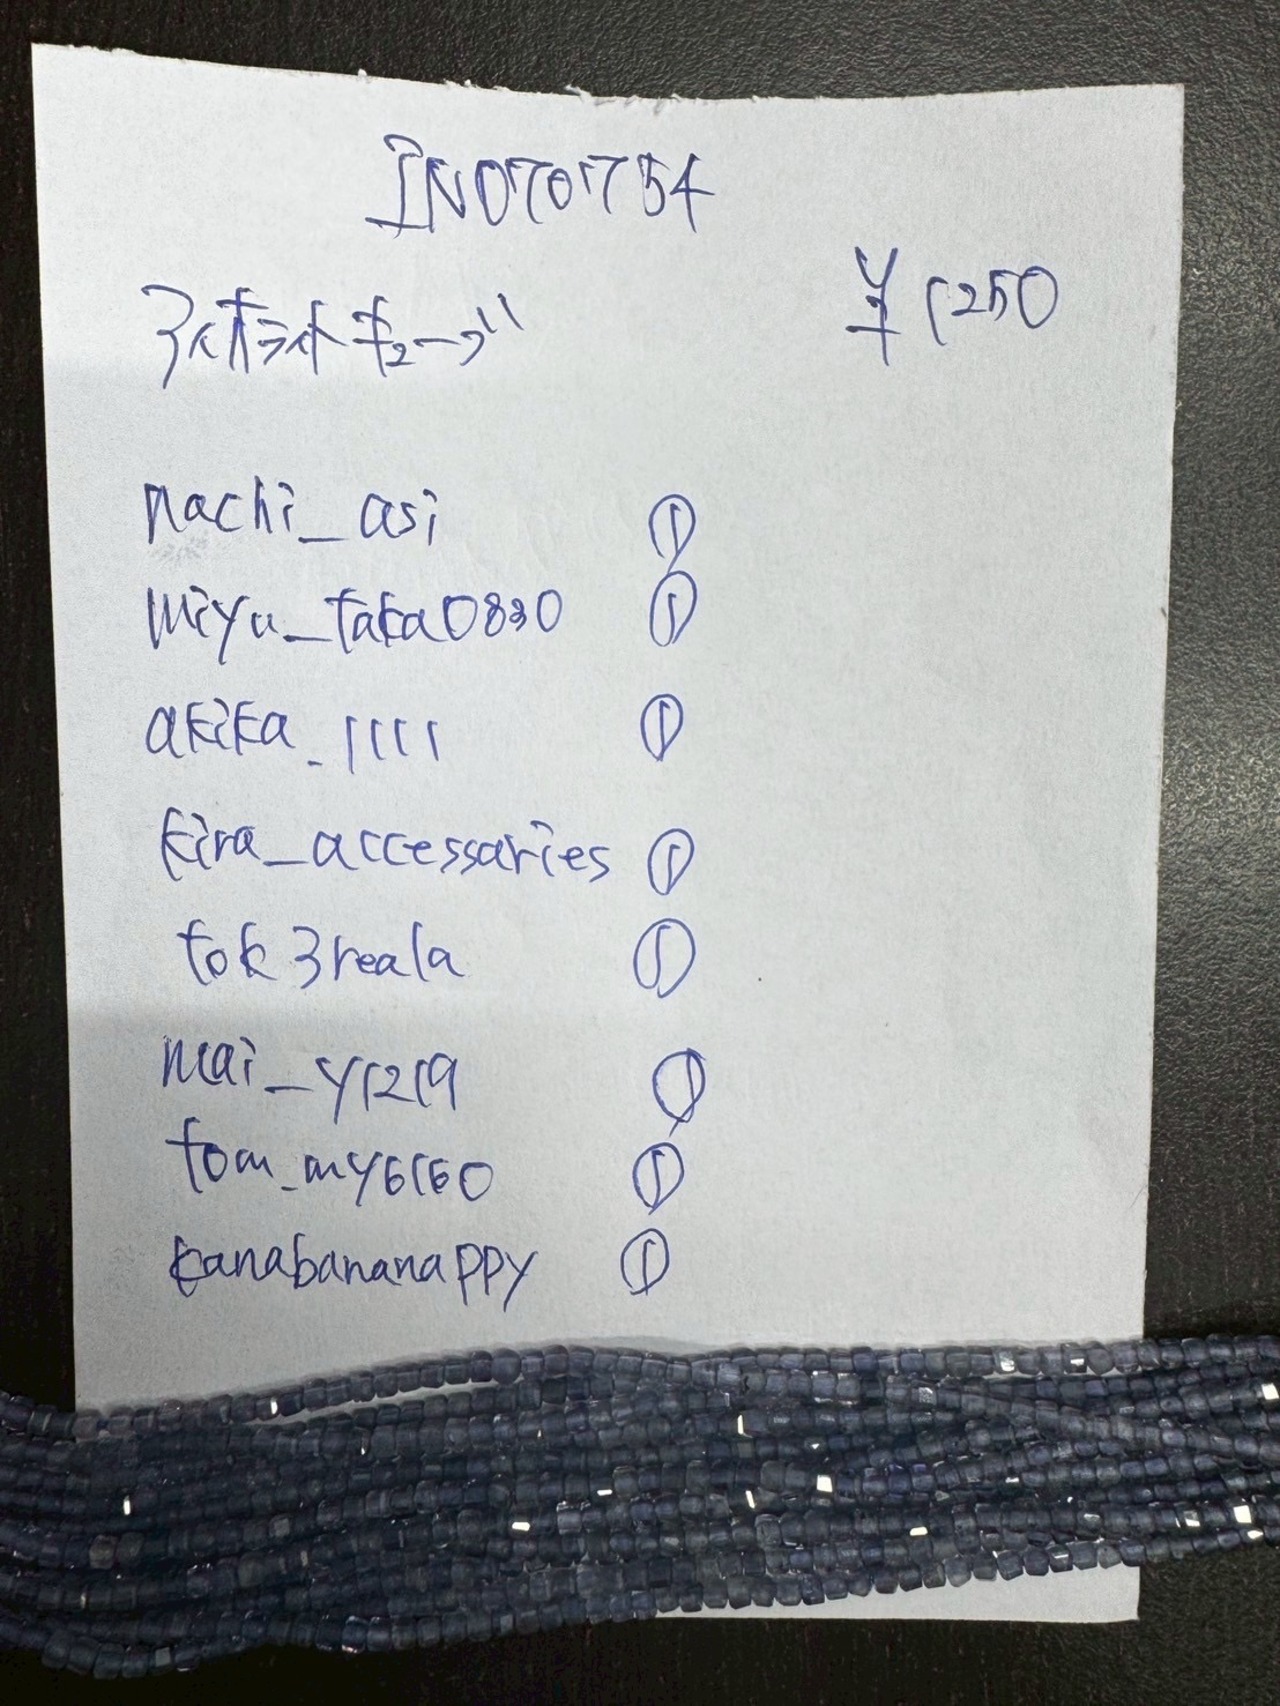 IN070754
アイオライトキューブ
¥1250
nachi_asi ①
miyu_taka0830 ①
akika_1111 ①
kira_accessaries ①
tok3reala ①
mai_y1219 ①
tom_my6160 ①
kanabananappy ①